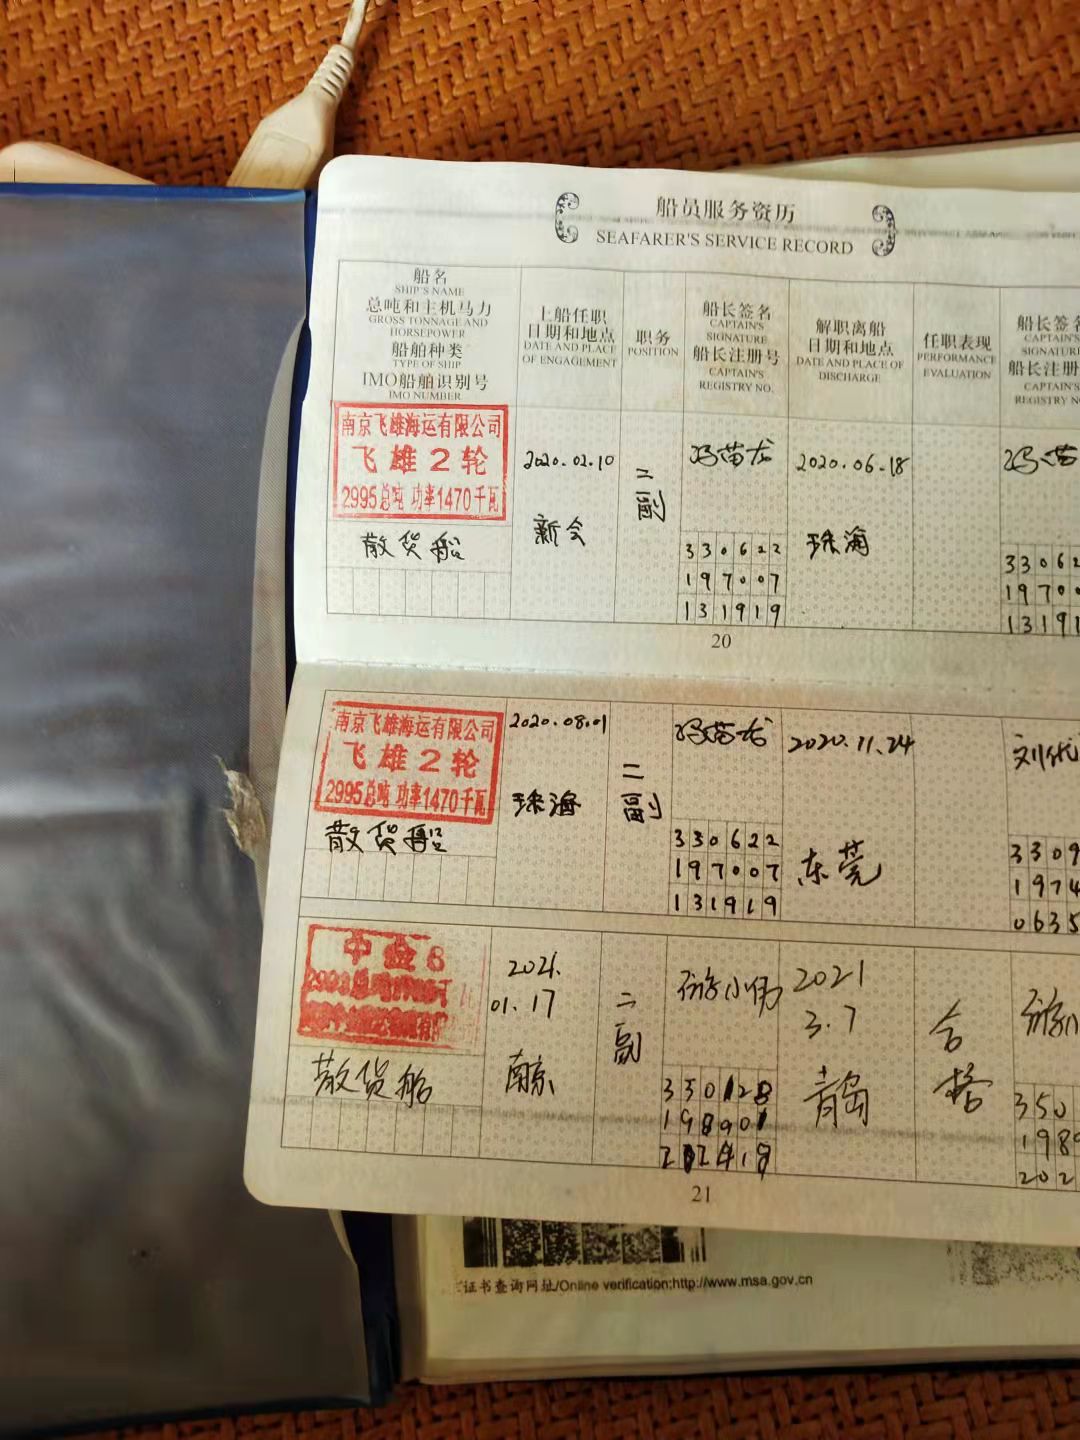 船员服务资历
SEAFARER'S SERVICE RECORD
船名
SHIP'S NAME
总吨和主机马力
GROSS TONNAGE AND
HORSEPOWER
船舶种类
TYPE OF SHIP
IMO船舶识别号
IMO NUMBER
上船任职
日期和地点
DATE AND PLACE
OF ENGAGEMENT
职务
POSITION
船长签名
CAPTAIN'S
SIGNATURE
船长注册号
CAPTAIN'S
REGISTRY NO.
解职离船
日期和地点
DATE AND PLACE OF
DISCHARGE
任职表现
PERFORMANCE
EVALUATION
船长签名
CAPTAIN'S
SIGNATURE
船长注册
CAPTAIN'S
REGISTRY NO.
南京飞雄海运有限公司
飞雄2轮
2995总吨 功率1470千瓦
散货船
2020.02.10
新会
二副
冯苗龙
330622
197007
131919
2020.06.18
珠海
冯苗
33062
19700
13191
20
南京飞雄海运有限公司
飞雄2轮
2995总吨 功率1470千瓦
散货船
2020.08.01
珠海
二副
冯苗龙
330622
197007
131919
2020.11.24
东莞
3309
1974
0635
中 8
散货船
2021.
01.17
南京
二副
游小伟
2021
3.7
青岛
合格
350
198
202
21
证书查询网址/Online verification:http://www.msa.gov.cn